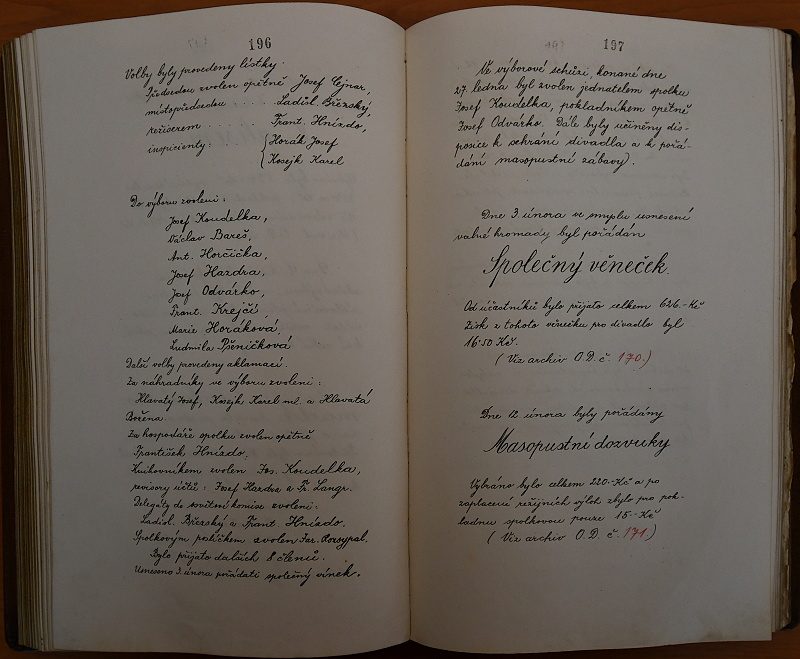 196
Volby byly provedeny lístky.
Předsedou zvolen opětně Josef Cejnar,
místopředsedou . . . . . Ladisl. Březský,
režiserem . . . . . Frant. Hnízdo,
inspicienty: . . . { Horák Josef
Kosejk Karel
Do výboru zvoleni:
Josef Koudelka,
Václav Bareš,
Ant. Horčička,
Josef Hazdra,
Josef Odvárko,
Frant. Krejčí
Marie Horáková
Ludmila Pšeničková
Další volby provedeny aklamací.
Za náhradníky ve výboru zvoleni:
Hlavatý Josef, Kosejk Karel ml. a Hlavatá
Božena.
Za hospodáře spolku zvolen opětně
František Hnízdo,
Knihovníkem zvolen Jos. Koudelka,
revisory účtů: Josef Hazdra a Fr. Langr.
Delegáty do komise zvoleni:
Ladisl. Březský a Frant. Hnízdo.
Spolkovým zvolen Jar. Rozsypal.
Bylo přijato dalších 8 členů.
Usneseno 3. února pořádati společný vínek.
197
Ve výborové schůzi, konané dne
27. ledna byl zvolen jednatelem spolku
Josef Koudelka, pokladníkem opětně
Josef Odvárko. Dále byly učiněny dis-
posice k sehrání divadla a k pořá-
dání masopustní zábavy).
Dne 3. února ve smyslu usnesení
valné hromady byl pořádán
Společný věneček.
Od účastníků bylo přijato celkem 626.- Kč
Zisk z tohoto věnečku pro divadlo byl
16·50 Kč.
( Viz archiv O.D. č. 170.)
Dne 12. února byly pořádány
Masopustní dozvuky
Vybráno bylo celkem 220.- Kč a po
zaplacení režijních výloh zbylo pro pok-
ladnu spolkovou pouze 15.- Kč
( Viz archiv O.D. č. 171.)